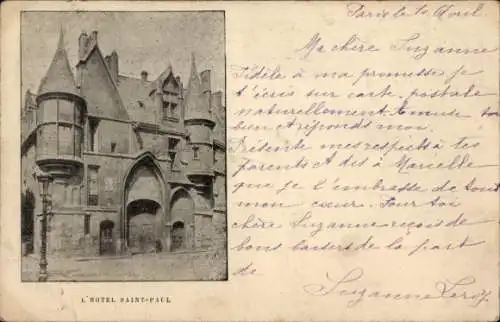 Paris le 10 Avril
Ma chère Suzanne
Fidèle à ma promesse je
t'écris sur carte postale
naturellement. Amuse toi
bien et réponds moi.
Présente mes respects à tes
parents et dis à Marcelle
que je l'embrasse de tout
mon cœur. Pour toi
chère Suzanne reçois de
bons baisers de la part
de
Suzanne Leroy
L'HOTEL SAINT-PAUL